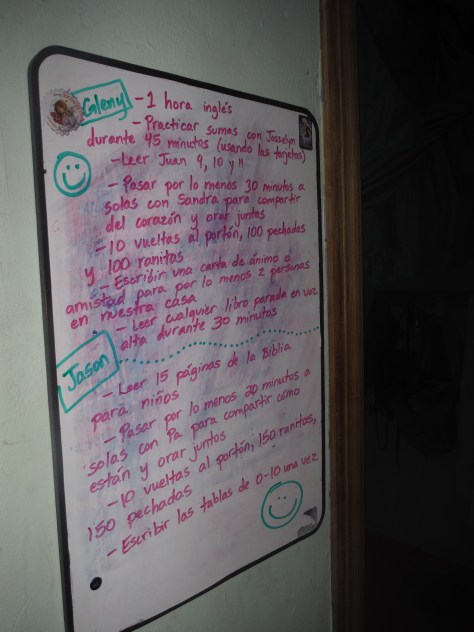 Gleny - 1 hora inglés
- Practicar sumas con Josselyn
durante 45 minutos (usando las tarjetas)
- Leer Juan 9, 10 y 11
- Pasar por lo menos 30 minutos a
solas con Sandra para compartir
del corazón y orar juntas
- 10 vueltas al portón, 100 pechadas
y 100 ranitas
- Escribir una carta de ánimo o
amistad para por lo menos 2 personas
en nuestra casa
- Leer cualquier libro parada en voz
alta durante 30 minutos
Jason
- Leer 15 páginas de la Biblia
para niños
- Pasar por lo menos 20 minutos a
solas con Pa para compartir como
están y orar juntos
- 10 vueltas al portón, 150 ranitas,
150 pechadas
- Escribir las tablas de 0-10 una vez